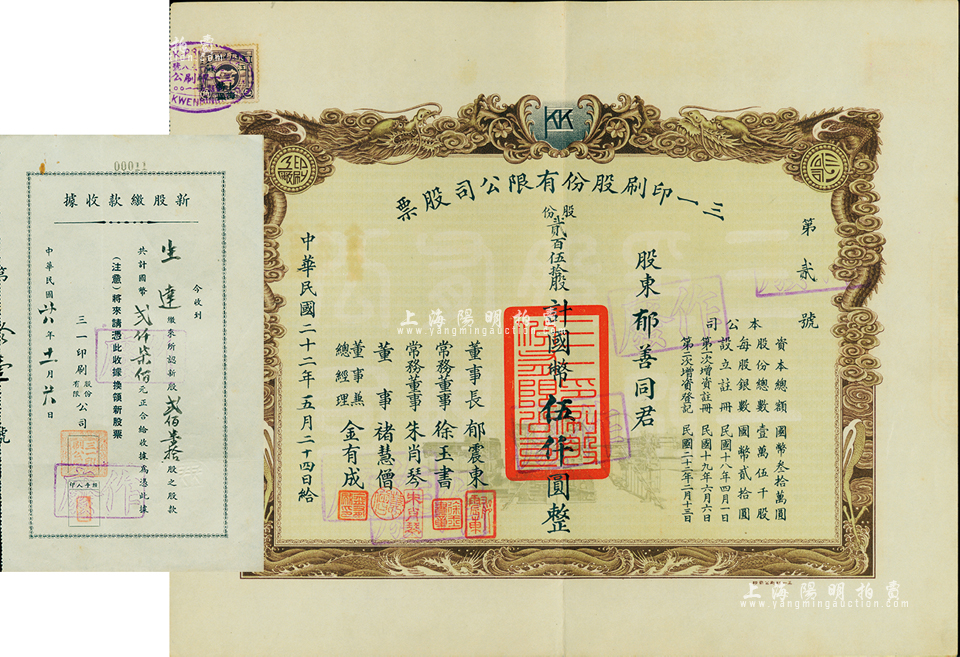 三一印刷股份有限公司股票
第貳號
本公司
資本總額 國幣叁拾萬圓
股份總數 壹萬伍千股
每股銀數 國幣貳拾圓
設立註冊 民國十八年四月一日
第一次增資註冊 民國十九年六月六日
第二次增資登記 民國二十二年二月十三日
股東郁善同君
股份貳百伍拾股計國幣伍仟圓整
董事長 郁震東
常務董事 徐玉書
常務董事 朱肖琴
董事 褚慧僧
董事兼總經理 金有成
中華民國二十二年五月二十四日給
KK
00022
新股繳款收據
今收到
生達繳來所認新股貳佰柒拾股之股款
共計國幣貳仟柒佰元正合給收據為憑此據
(注意)將來請憑此收據換領新股票
三一印刷股份有限公司
經手人印
中華民國廿六年十一月廿六日
作廢
作廢
上海陽明拍賣
www.yangmingauction.com
上海陽明拍賣
www.yangmingauction.com